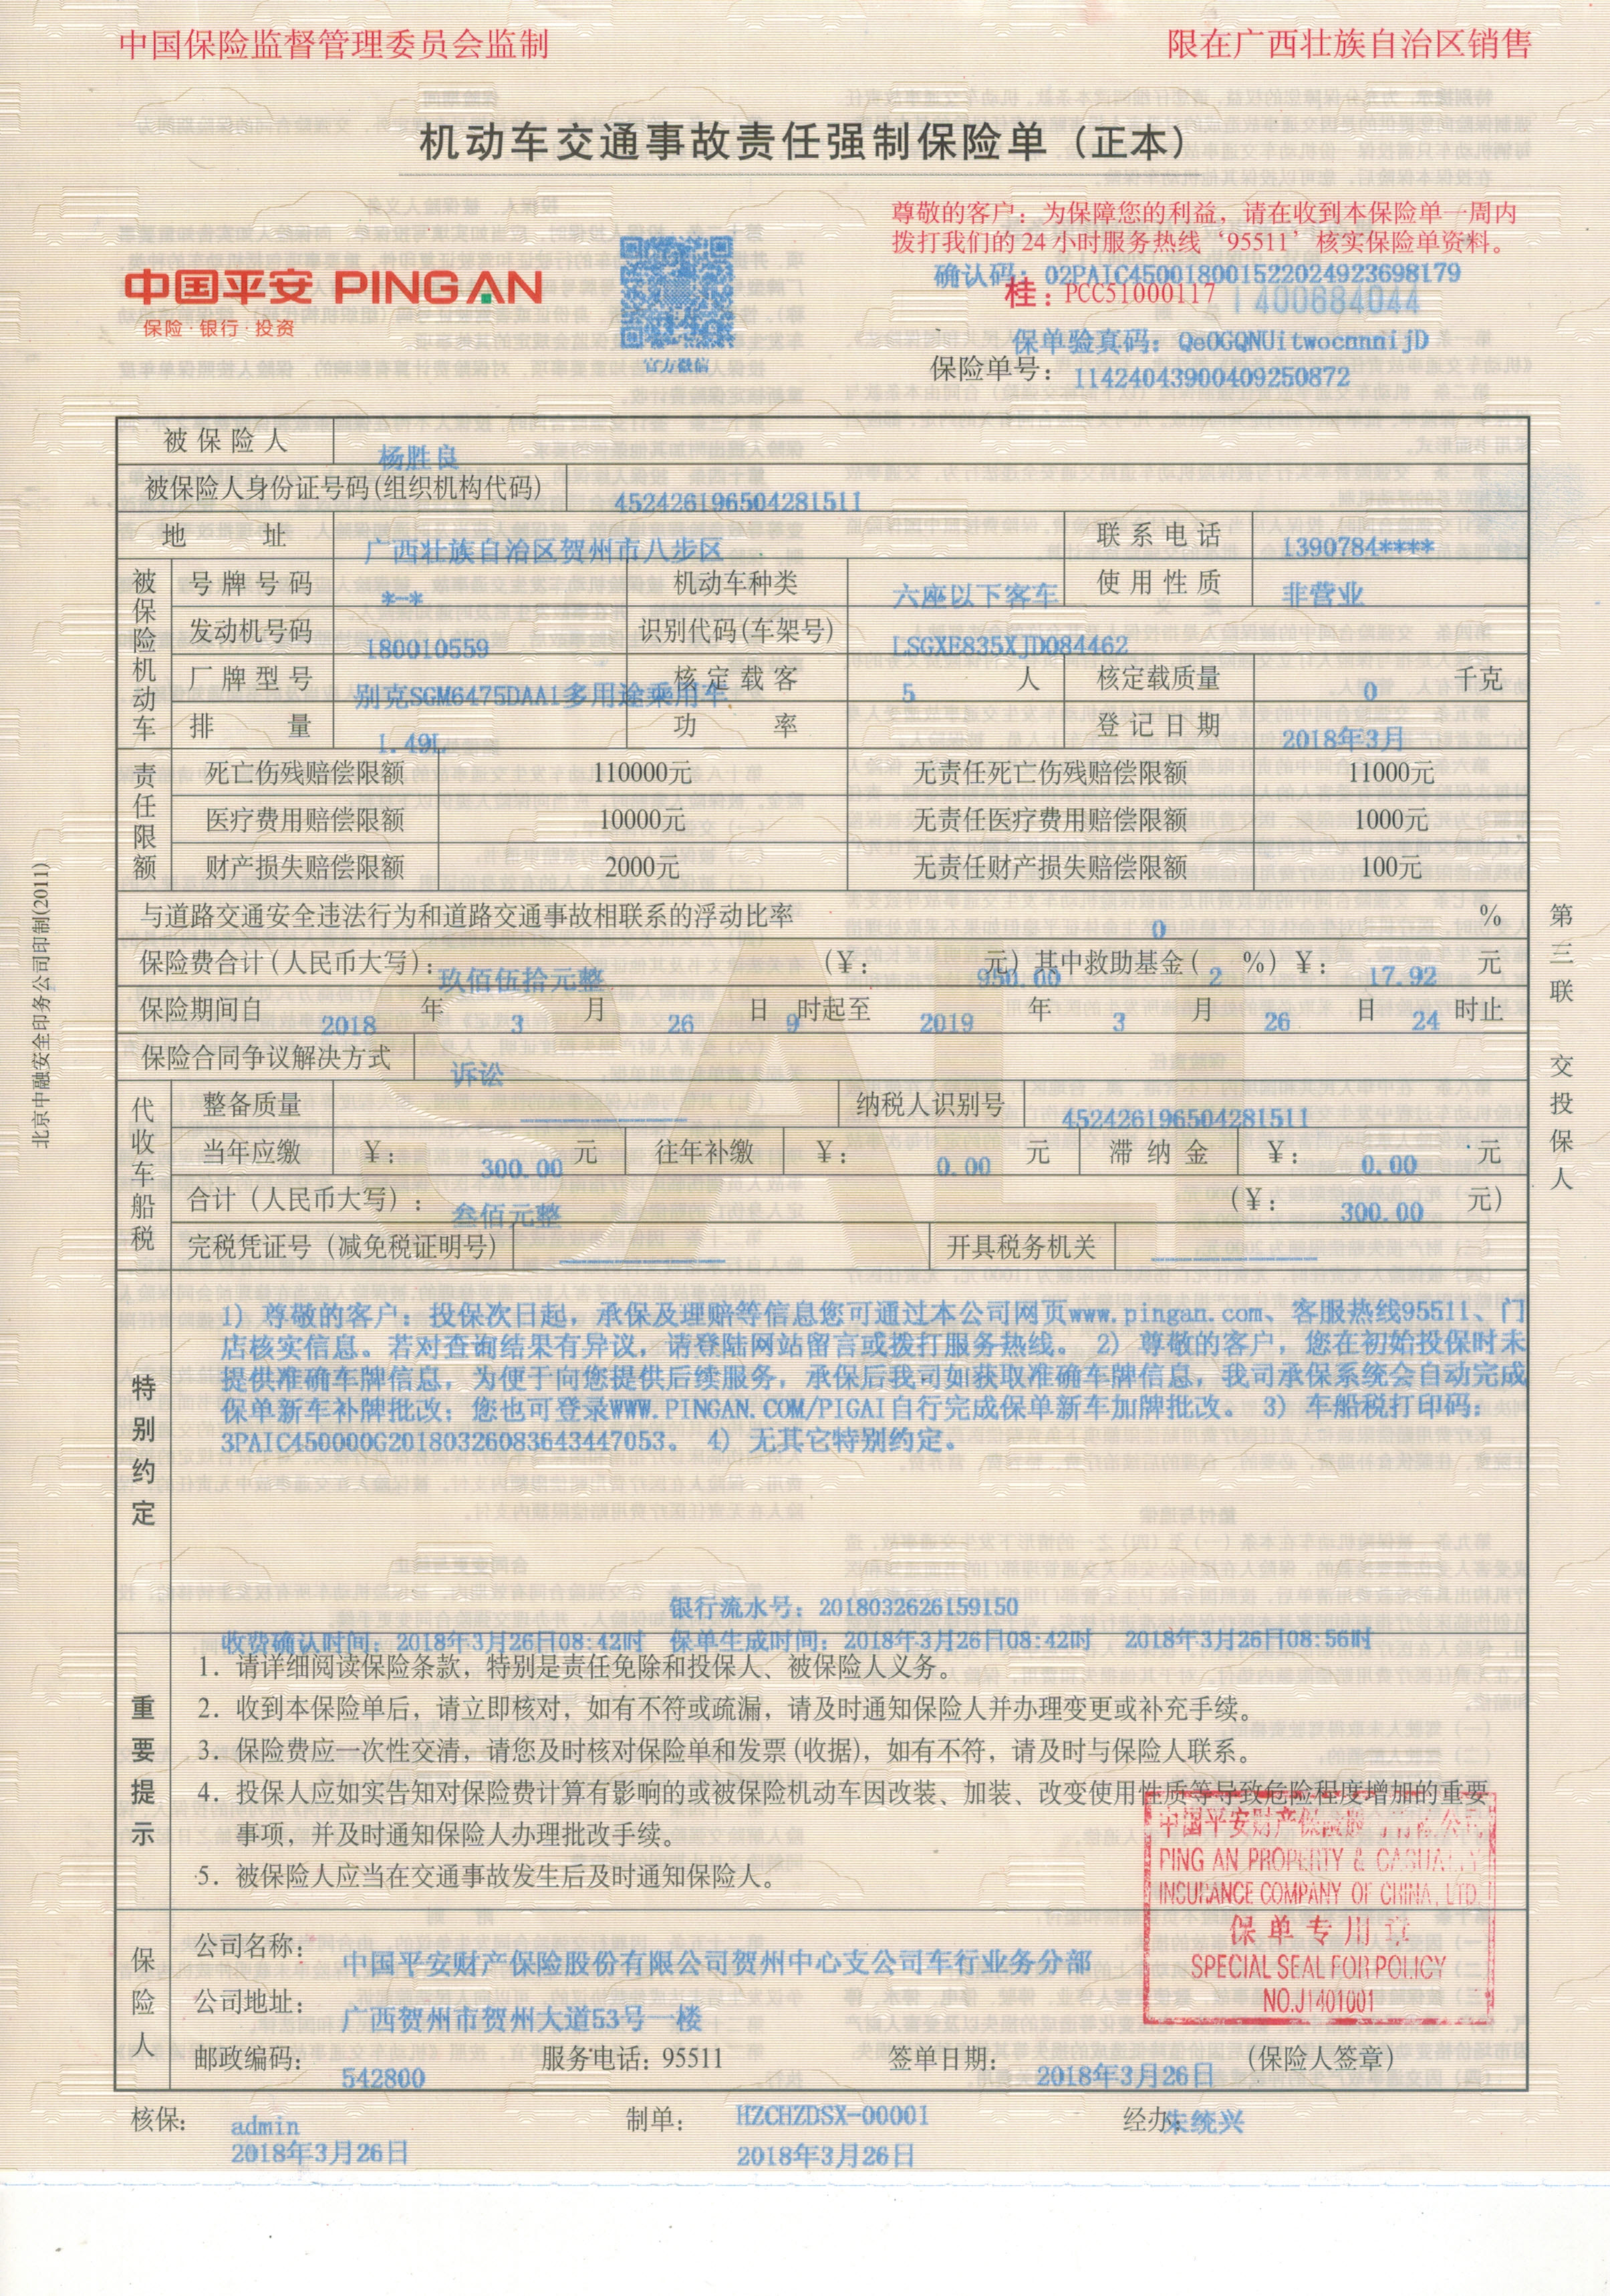 中国保险监督管理委员会监制
限在广西壮族自治区销售
机动车交通事故责任强制保险单（正本）
尊敬的客户：为保障您的利益，请在收到本保险单一周内
拨打我们的24小时服务热线‘95511’核实保险单资料。
中国平安 PING AN
保险·银行·投资
官方微信
确认码：02PAIC450018001522024923698179
桂：PCC51000117
1400684044
保单验真码：QeOGQNUitwocnnnijD
保险单号：11424043900409250872
被保险人 杨胜良
被保险人身份证号码(组织机构代码) 452426196504281511
地址 广西壮族自治区贺州市八步区 联系电话 1390784****
被保险机动车
号牌号码 *-* 机动车种类 六座以下客车 使用性质 非营业
发动机号码 180010559 识别代码(车架号) LSGXE835XJD084462
厂牌型号 别克SGM6475DAA1多用途乘用车 核定载客 5 人 核定载质量 0 千克
排量 1.49L 功率 登记日期 2018年3月
责任限额
死亡伤残赔偿限额 110000元 无责任死亡伤残赔偿限额 11000元
医疗费用赔偿限额 10000元 无责任医疗费用赔偿限额 1000元
财产损失赔偿限额 2000元 无责任财产损失赔偿限额 100元
与道路交通安全违法行为和道路交通事故相联系的浮动比率 0 %
保险费合计(人民币大写)：玖佰伍拾元整 (￥：950.00 元) 其中救助基金(2 %)￥：17.92 元
保险期间自 2018 年 3 月 26 日 9 时起至 2019 年 3 月 26 日 24 时止
保险合同争议解决方式 诉讼
代收车船税
整备质量 纳税人识别号 452426196504281511
当年应缴 ￥：300.00 元 往年补缴 ￥：0.00 元 滞纳金 ￥：0.00 元
合计（人民币大写）：叁佰元整 （￥：300.00 元）
完税凭证号（减免税证明号） 开具税务机关
特别约定
1）尊敬的客户：投保次日起，承保及理赔等信息您可通过本公司网页www.pingan.com、客服热线95511、门
店核实信息。若对查询结果有异议，请登陆网站留言或拨打服务热线。 2）尊敬的客户，您在初始投保时未
提供准确车牌信息，为便于向您提供后续服务，承保后我司如获取准确车牌信息，我司承保系统会自动完成
保单新车补牌批改；您也可登录WWW.PINGAN.COM/PIGAI自行完成保单新车加牌批改。 3）车船税打印码：
3PAIC450000G20180326083643447053。 4）无其它特别约定。
银行流水号：2018032626159150
收费确认时间：2018年3月26日08:42时 保单生成时间：2018年3月26日08:42时 2018年3月26日08:56时
重要提示
1．请详细阅读保险条款，特别是责任免除和投保人、被保险人义务。
2．收到本保险单后，请立即核对，如有不符或疏漏，请及时通知保险人并办理变更或补充手续。
3．保险费应一次性交清，请您及时核对保险单和发票(收据)，如有不符，请及时与保险人联系。
4．投保人应如实告知对保险费计算有影响的或被保险机动车因改装、加装、改变使用性质等导致危险程度增加的重要
事项，并及时通知保险人办理批改手续。
5．被保险人应当在交通事故发生后及时通知保险人。
中国平安财产保险股份有限公司
PING AN PROPERTY & CASUALTY
INSURANCE COMPANY OF CHINA, LTD.
保单专用章
SPECIAL SEAL FOR POLICY
NO.J1401001
保险人
公司名称：中国平安财产保险股份有限公司贺州中心支公司车行业务分部
公司地址：广西贺州市贺州大道53号一楼
邮政编码：542800 服务电话：95511 签单日期：2018年3月26日 (保险人签章)
核保：admin 制单：HZCHZDSX-00001 经办：朱统兴
2018年3月26日 2018年3月26日
北京中融安全印务公司印制(2011)
第三联 交投保人
SALI